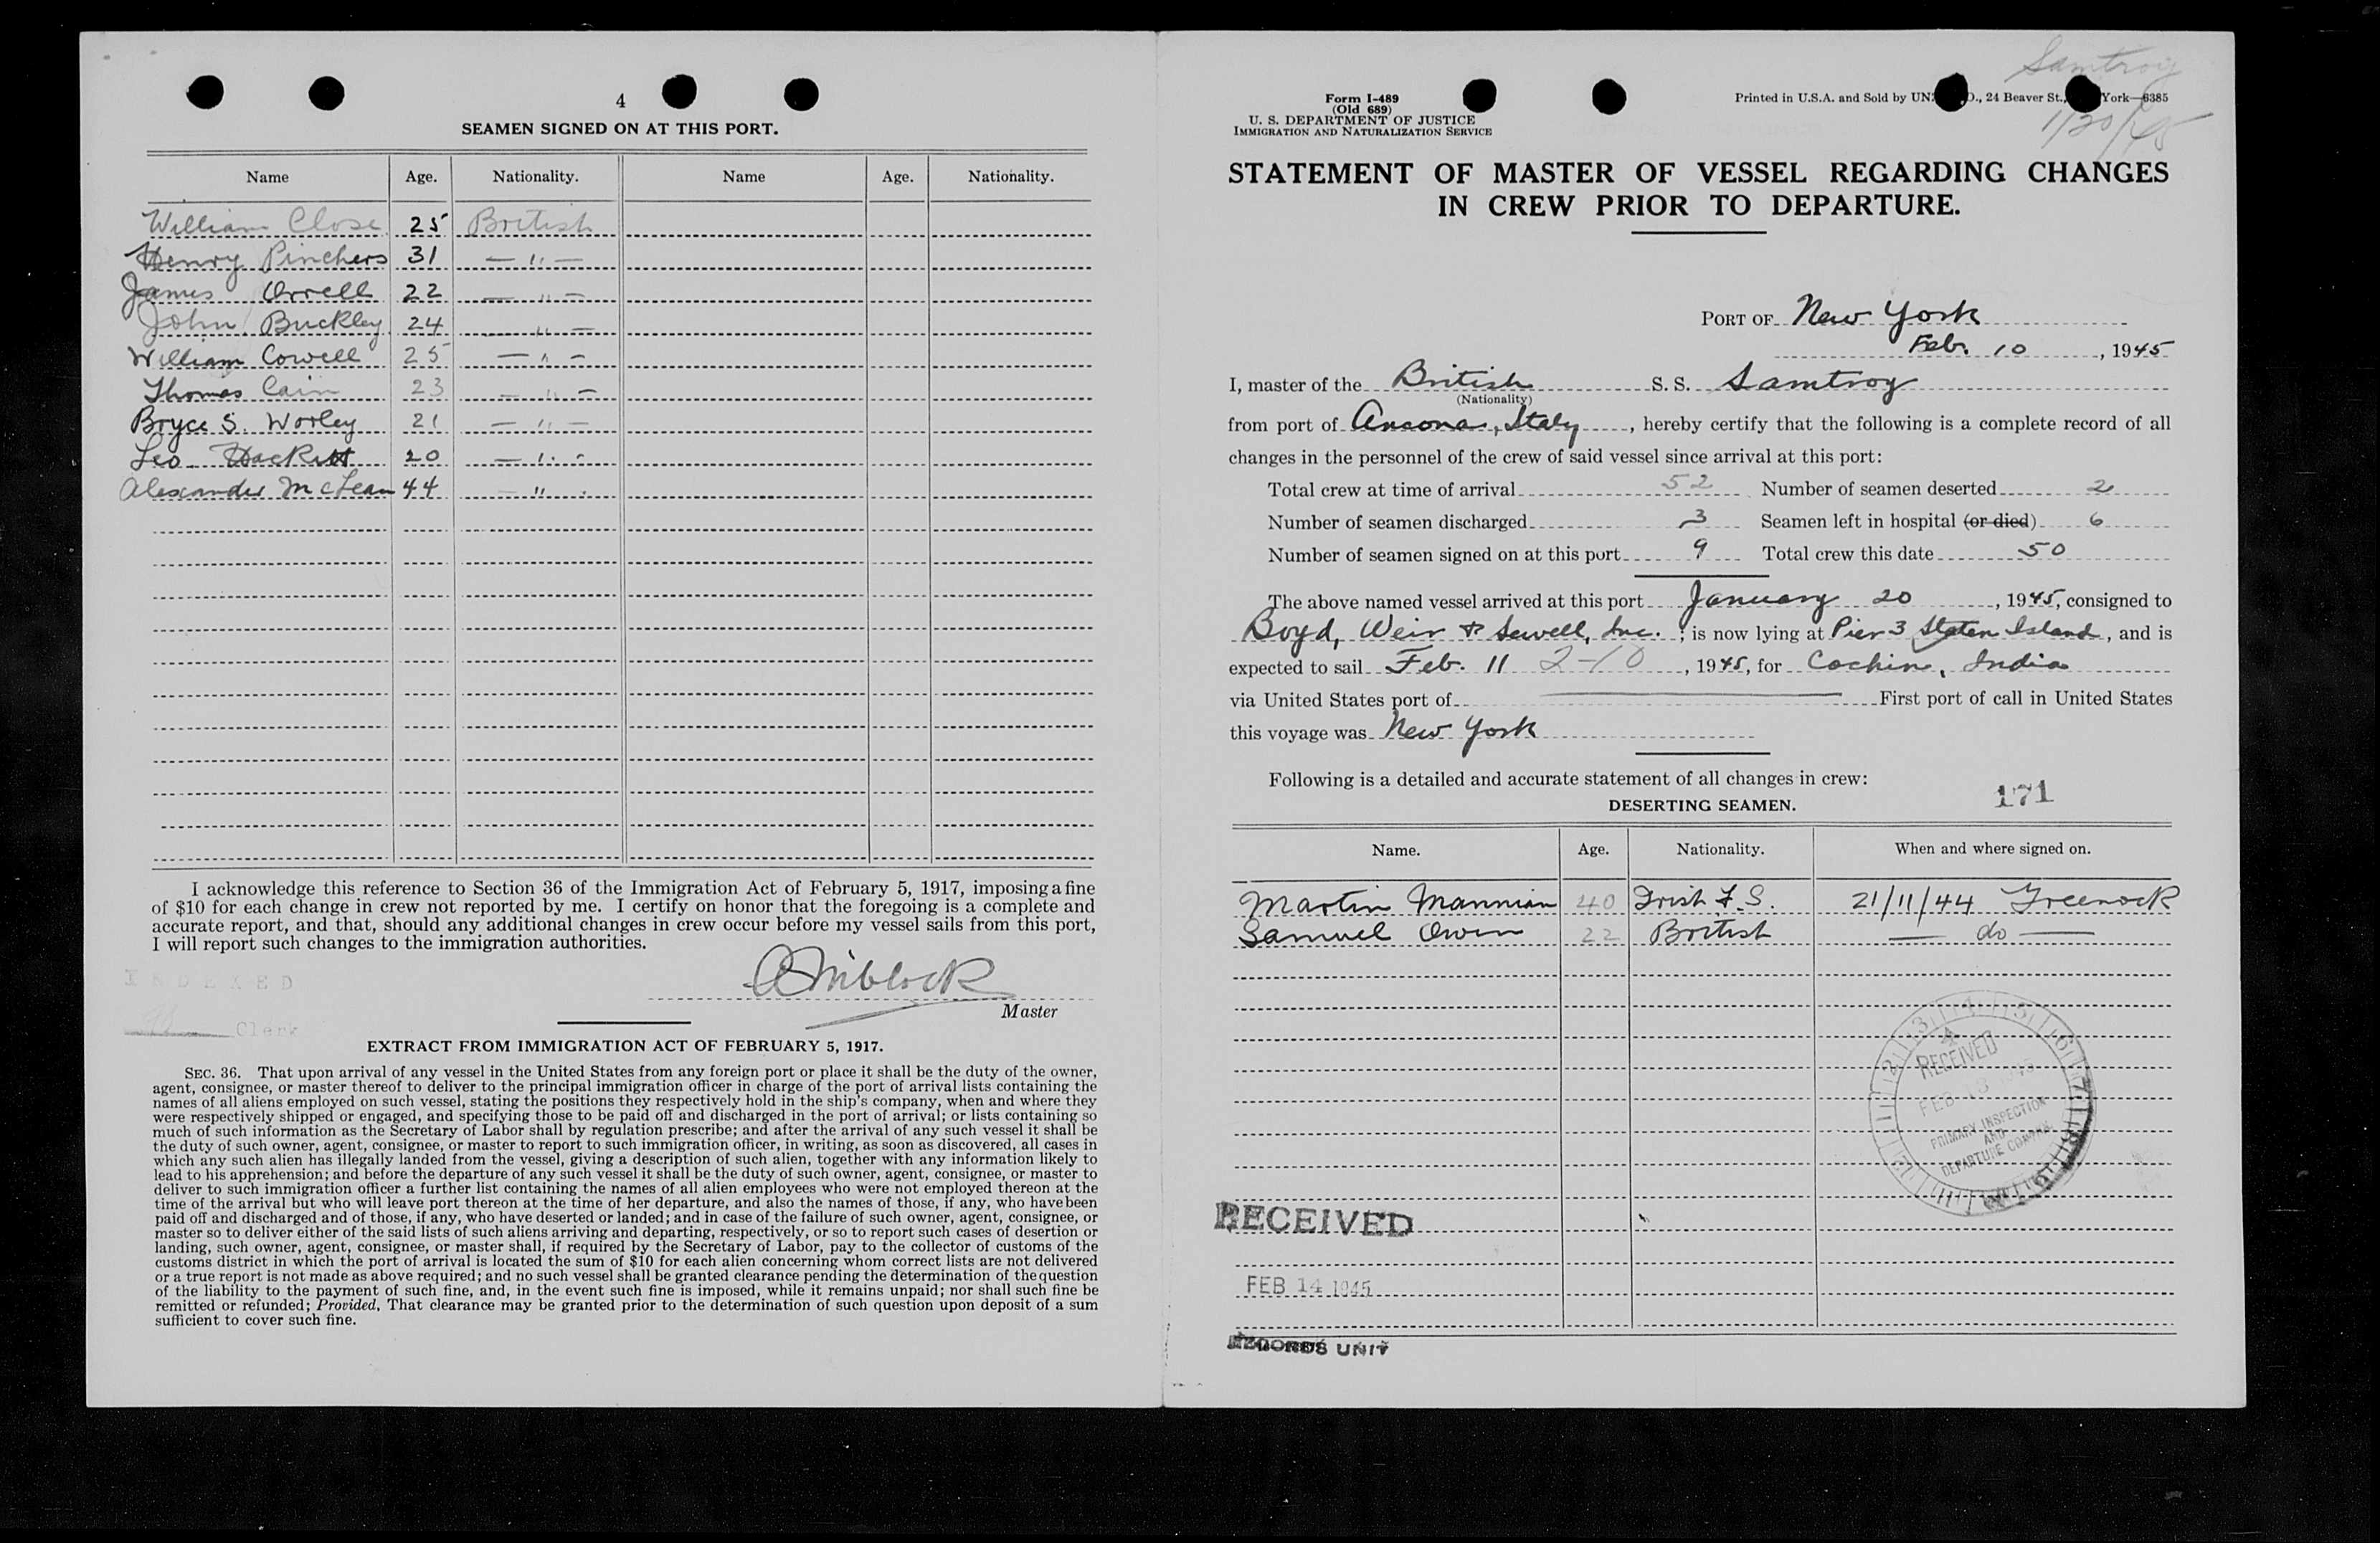 4
SEAMEN SIGNED ON AT THIS PORT.
Name Age. Nationality. Name Age. Nationality.
William Close 25 British
Henry Pinchers 31 — " —
James Orrell 22 — " —
John Buckley 24 — " —
William Cowell 25 — " —
Thomas Cain 23 — " —
Bryce S. Worley 21 — " —
Leo Hackett 20 — " -
Alexander McLean 44 — " -
I acknowledge this reference to Section 36 of the Immigration Act of February 5, 1917, imposing a fine
of $10 for each change in crew not reported by me. I certify on honor that the foregoing is a complete and
accurate report, and that, should any additional changes in crew occur before my vessel sails from this port,
I will report such changes to the immigration authorities.
INDEXED
Clerk
A Niblock
Master
EXTRACT FROM IMMIGRATION ACT OF FEBRUARY 5, 1917.
SEC. 36. That upon arrival of any vessel in the United States from any foreign port or place it shall be the duty of the owner,
agent, consignee, or master thereof to deliver to the principal immigration officer in charge of the port of arrival lists containing the
names of all aliens employed on such vessel, stating the positions they respectively hold in the ship's company, when and where they
were respectively shipped or engaged, and specifying those to be paid off and discharged in the port of arrival; or lists containing so
much of such information as the Secretary of Labor shall by regulation prescribe; and after the arrival of any such vessel it shall be
the duty of such owner, agent, consignee, or master to report to such immigration officer, in writing, as soon as discovered, all cases in
which any such alien has illegally landed from the vessel, giving a description of such alien, together with any information likely to
lead to his apprehension; and before the departure of any such vessel it shall be the duty of such owner, agent, consignee, or master to
deliver to such immigration officer a further list containing the names of all alien employees who were not employed thereon at the
time of the arrival but who will leave port thereon at the time of her departure, and also the names of those, if any, who have been
paid off and discharged and of those, if any, who have deserted or landed; and in case of the failure of such owner, agent, consignee, or
master so to deliver either of the said lists of such aliens arriving and departing, respectively, or so to report such cases of desertion or
landing, such owner, agent, consignee, or master shall, if required by the Secretary of Labor, pay to the collector of customs of the
customs district in which the port of arrival is located the sum of $10 for each alien concerning whom correct lists are not delivered
or a true report is not made as above required; and no such vessel shall be granted clearance pending the determination of the question
of the liability to the payment of such fine, and, in the event such fine is imposed, while it remains unpaid; nor shall such fine be
remitted or refunded; Provided, That clearance may be granted prior to the determination of such question upon deposit of a sum
sufficient to cover such fine.
Samtroy
1/20/45
Form I-489
(Old 689)
U. S. DEPARTMENT OF JUSTICE
IMMIGRATION AND NATURALIZATION SERVICE
Printed in U.S.A. and Sold by 24 Beaver St., York—6385
STATEMENT OF MASTER OF VESSEL REGARDING CHANGES
IN CREW PRIOR TO DEPARTURE.
PORT OF New York
Feb. 10, 1945
I, master of the British S. S. Samtroy
(Nationality)
from port of Ancona, Italy, hereby certify that the following is a complete record of all
changes in the personnel of the crew of said vessel since arrival at this port:
Total crew at time of arrival 52 Number of seamen deserted 2
Number of seamen discharged 3 Seamen left in hospital (or died) 6
Number of seamen signed on at this port 9 Total crew this date 50
The above named vessel arrived at this port January 20, 1945, consigned to
Boyd, Weir & Sewell, Inc.; is now lying at Pier 3 Staten Island, and is
expected to sail Feb. 11 2-10, 1945, for Cochin, India
via United States port of — First port of call in United States
this voyage was New York
Following is a detailed and accurate statement of all changes in crew:
171
DESERTING SEAMEN.
Name. Age. Nationality. When and where signed on.
Martin Mannion 40 Irish F.S. 21/11/44 Greenock
Samuel Owen 22 British — do —
RECEIVED
FEB 13 1945
PRIMARY INSPECTION
AND
DEPARTURE CONTROL
RECEIVED
FEB 14 1945
RECORDS UNIT